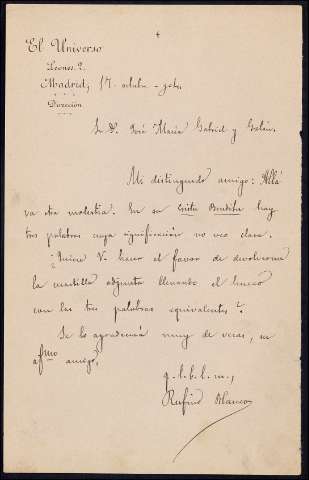 El Universo
Madrid, 17 octubre
Dirección
Sr. D. José María Gabriel y Galán.
Mi distinguido amigo: Allá
va otra molestia. En su Cristu Benditu hay
tres palabras cuya significación no veo clara.
¿Quiere V. hacer el favor de devolverme
la cuartilla adjunta llenando el hueco
con las tres palabras equivalentes?
Se lo agradecerá muy de veras, su
afmo amigo,
q. l. b. l. m.,
Rufino Blanco